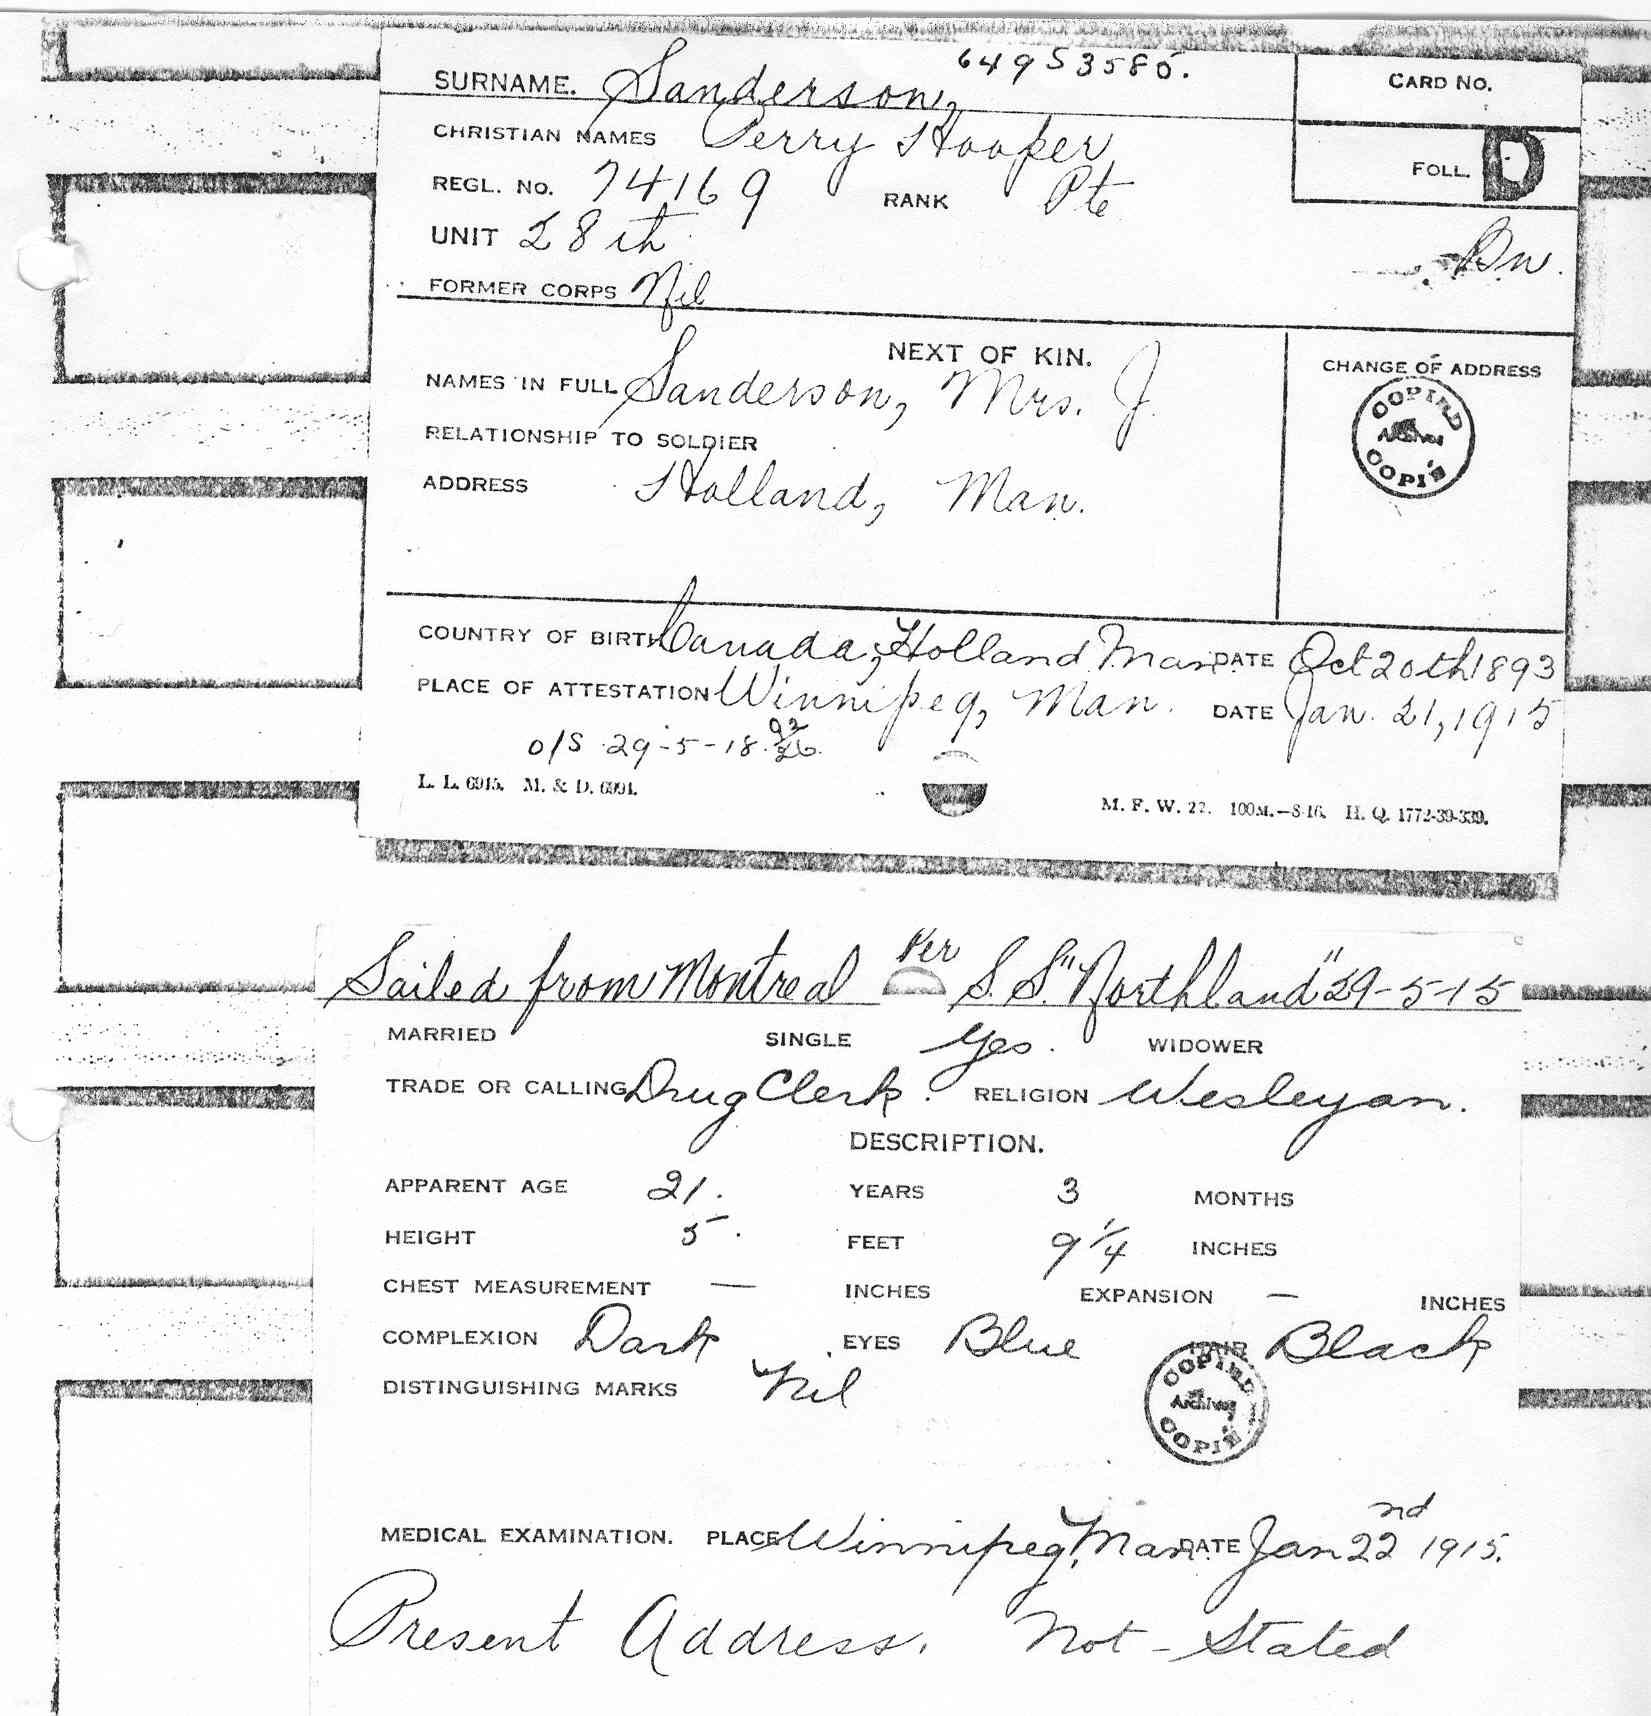 649 S 3585.
SURNAME. Sanderson, CARD NO.
CHRISTIAN NAMES Perry Hooper
FOLL. D
REGL. NO. 74169 RANK Pte
UNIT 28th Bn.
FORMER CORPS Nil
NEXT OF KIN. CHANGE OF ADDRESS
NAMES IN FULL Sanderson, Mrs. J.
COPIED
Archives
COPIÉ
RELATIONSHIP TO SOLDIER
ADDRESS Holland, Man.
COUNTRY OF BIRTH Canada, Holland Man. DATE Oct 20th 1893
PLACE OF ATTESTATION Winnipeg, Man. DATE Jan. 21, 1915
O/S 29-5-18.
L. L. 6915. M. & D. 6991.
M. F. W. 22. 100M.-8-16. H. Q. 1772-39-339.
Sailed from Montreal Per S.S. "Northland" 29-5-15
MARRIED SINGLE Yes. WIDOWER
TRADE OR CALLING Drug Clerk. RELIGION Wesleyan.
DESCRIPTION.
APPARENT AGE 21. YEARS 3 MONTHS
HEIGHT 5. FEET 9 1/4 INCHES
CHEST MEASUREMENT — INCHES EXPANSION — INCHES
COMPLEXION Dark EYES Blue HAIR Black
DISTINGUISHING MARKS Nil
COPIED
Archives
COPIÉ
MEDICAL EXAMINATION. PLACE Winnipeg, Man. DATE Jan 22nd 1915.
Present Address. Not-Stated